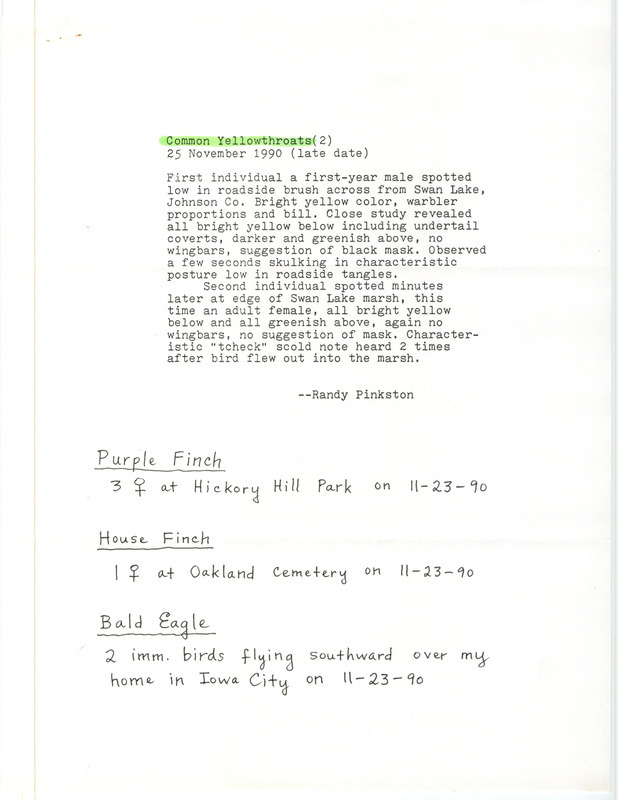 Common Yellowthroats(2)
25 November 1990 (late date)
First individual a first-year male spotted
low in roadside brush across from Swan Lake,
Johnson Co. Bright yellow color, warbler
proportions and bill. Close study revealed
all bright yellow below including undertail
coverts, darker and greenish above, no
wingbars, suggestion of black mask. Observed
a few seconds skulking in characteristic
posture low in roadside tangles.
Second individual spotted minutes
later at edge of Swan Lake marsh, this
time an adult female, all bright yellow
below and all greenish above, again no
wingbars, no suggestion of mask. Character-
istic "tcheck" scold note heard 2 times
after bird flew out into the marsh.
--Randy Pinkston
Purple Finch
3 ♀ at Hickory Hill Park on 11-23-90
House Finch
1 ♀ at Oakland Cemetery on 11-23-90
Bald Eagle
2 imm. birds flying southward over my
home in Iowa City on 11-23-90